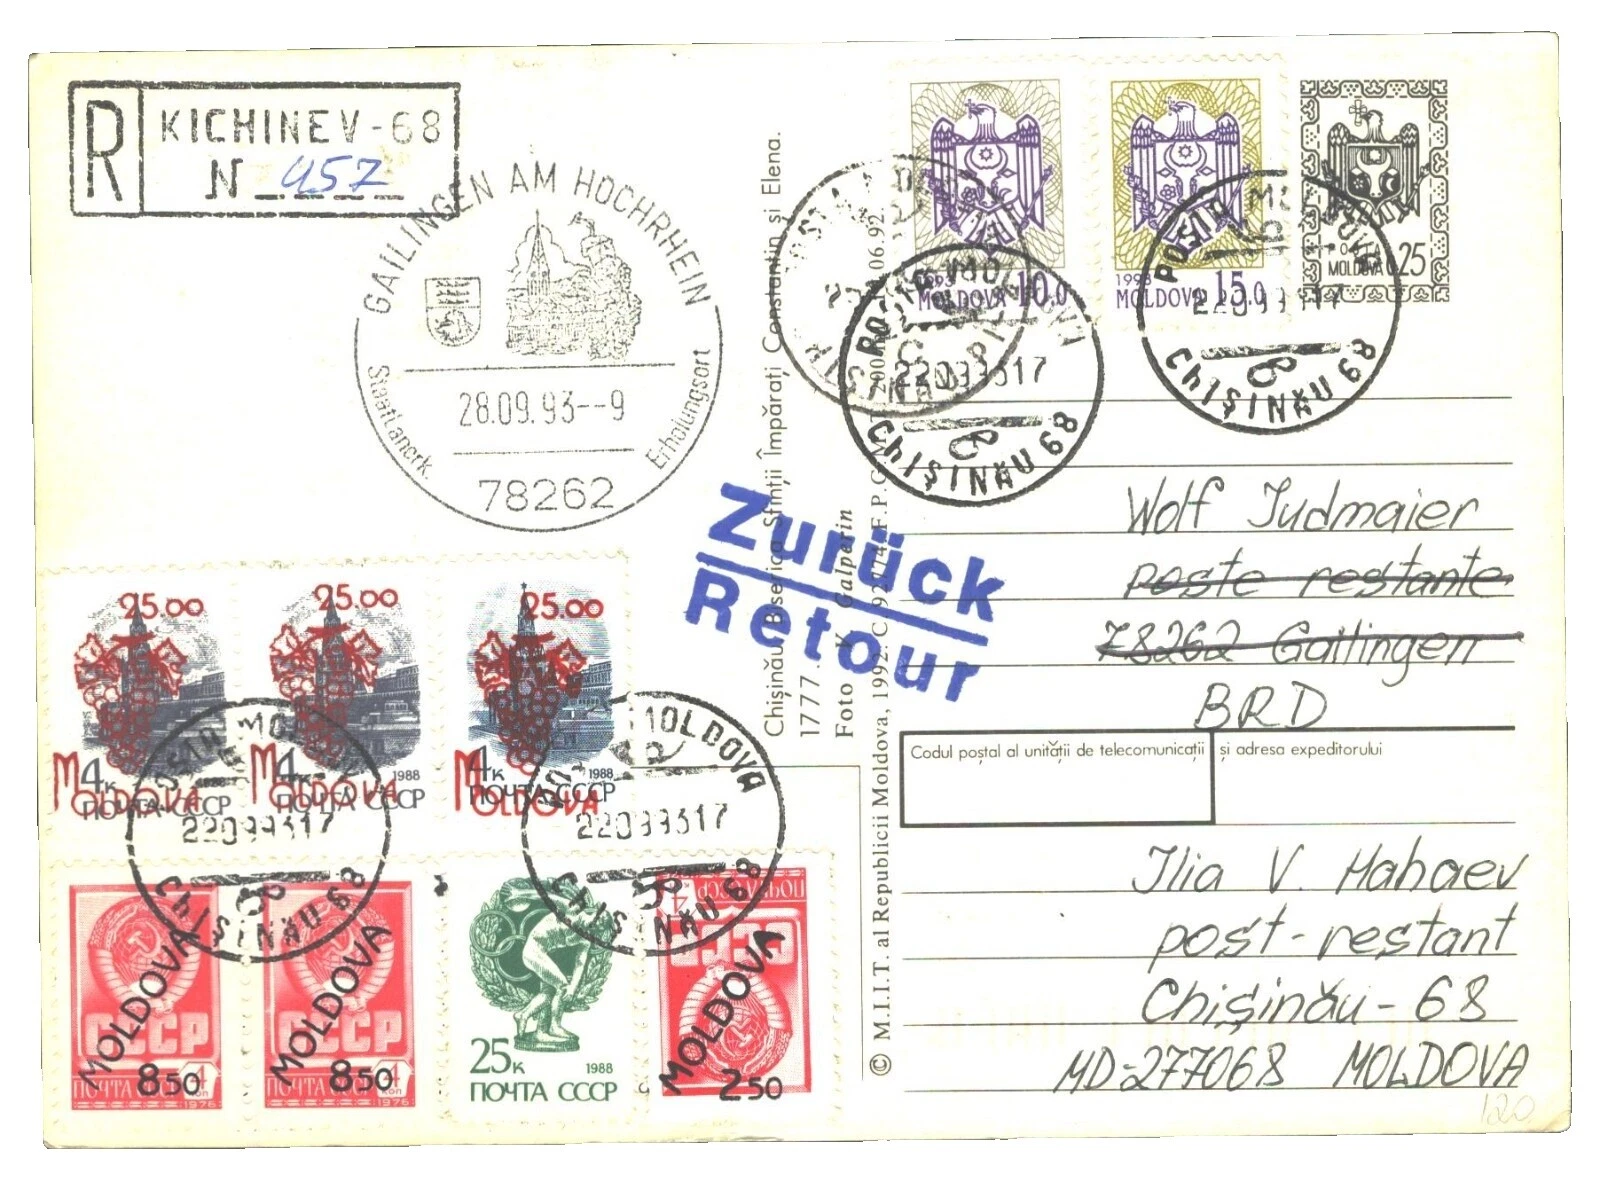 R KICHINEV-68
N 457
GAILINGEN AM HOCHRHEIN
28.09.93--9
Staatl.anerk. Erholungsort
78262
1993
MOLDOVA 10.0
1993
MOLDOVA 15.0
MOLDOVA 0.25
POȘTA MOLDOVA
22099317
CHIȘINĂU 68
POȘTA MOLDOVA
22099317
CHIȘINĂU 68
Chișinău. Biserica Sfinții Împărați Constantin și Elena.
1777.
Foto V. Galperin
© M.I.I.T. al Republicii Moldova, 1992. C. 92174. F.P.C.
06.92.
Zurück
Retour
Wolf Judmaier
poste restante
78262 Gailingen
BRD
Codul poștal al unității de telecomunicații și adresa expeditorului
Ilia V. Mahaev
post-restant
Chișinău-68
MD-277068 MOLDOVA
120
25.00
4к
MOLDOVA
ПОЧТА СССР
25.00
4к 1988
MOLDOVA
ПОЧТА СССР
25.00
4к 1988
MOLDOVA
ПОЧТА СССР
POȘTA MOLDOVA
22099317
CHIȘINĂU 68
POȘTA MOLDOVA
22099317
CHIȘINĂU 68
СССР
MOLDOVA
ПОЧТА 4 коп
850
1976
СССР
MOLDOVA
ПОЧТА 4 коп
850
1976
25к 1988
ПОЧТА СССР
СССР
MOLDOVA
250